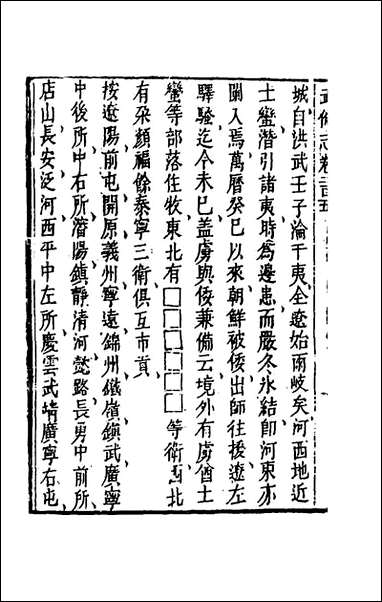 武備志卷二百五
城自洪武壬子淪于夷全遼始兩岐矣河西地近
士蠻潛引諸夷時為邊患而嚴冬氷結即河東亦
闌入焉萬曆癸巳以來朝鮮被倭出師往援遼左
驛騷迄今未已蓋虜與倭兼備云境外有虜酋土
蠻等部落住牧東北有□□□□□□等衛西北
有朵顏福餘泰寧三衛俱互市貢
按遼陽前屯開原義州寧遠錦州鐵嶺鎮武廣寧
中後所中右所瀋陽鎮靜清河懿路長勇中前所
店山長安泛河西平中左所慶雲武靖廣寧右屯